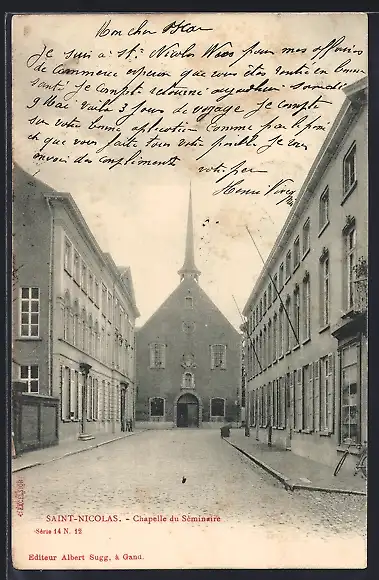 Mon cher Oscar
Je suis à St. Nicolas Waes pour mes affaires
de Commerce espérer que vous êtes rentré en bonne
santé. Je compte retourner aujourd'hui samedi
9 Mai voila 3 jours de voyage Je compte
sur votre bonne application comme par le passé
et que vous faite tous votre possible Je vous
envois des Compliments votre père
Henri
SAINT-NICOLAS. - Chapelle du Séminaire
Série 14 N. 12
Editeur Albert Sugg, à Gand.